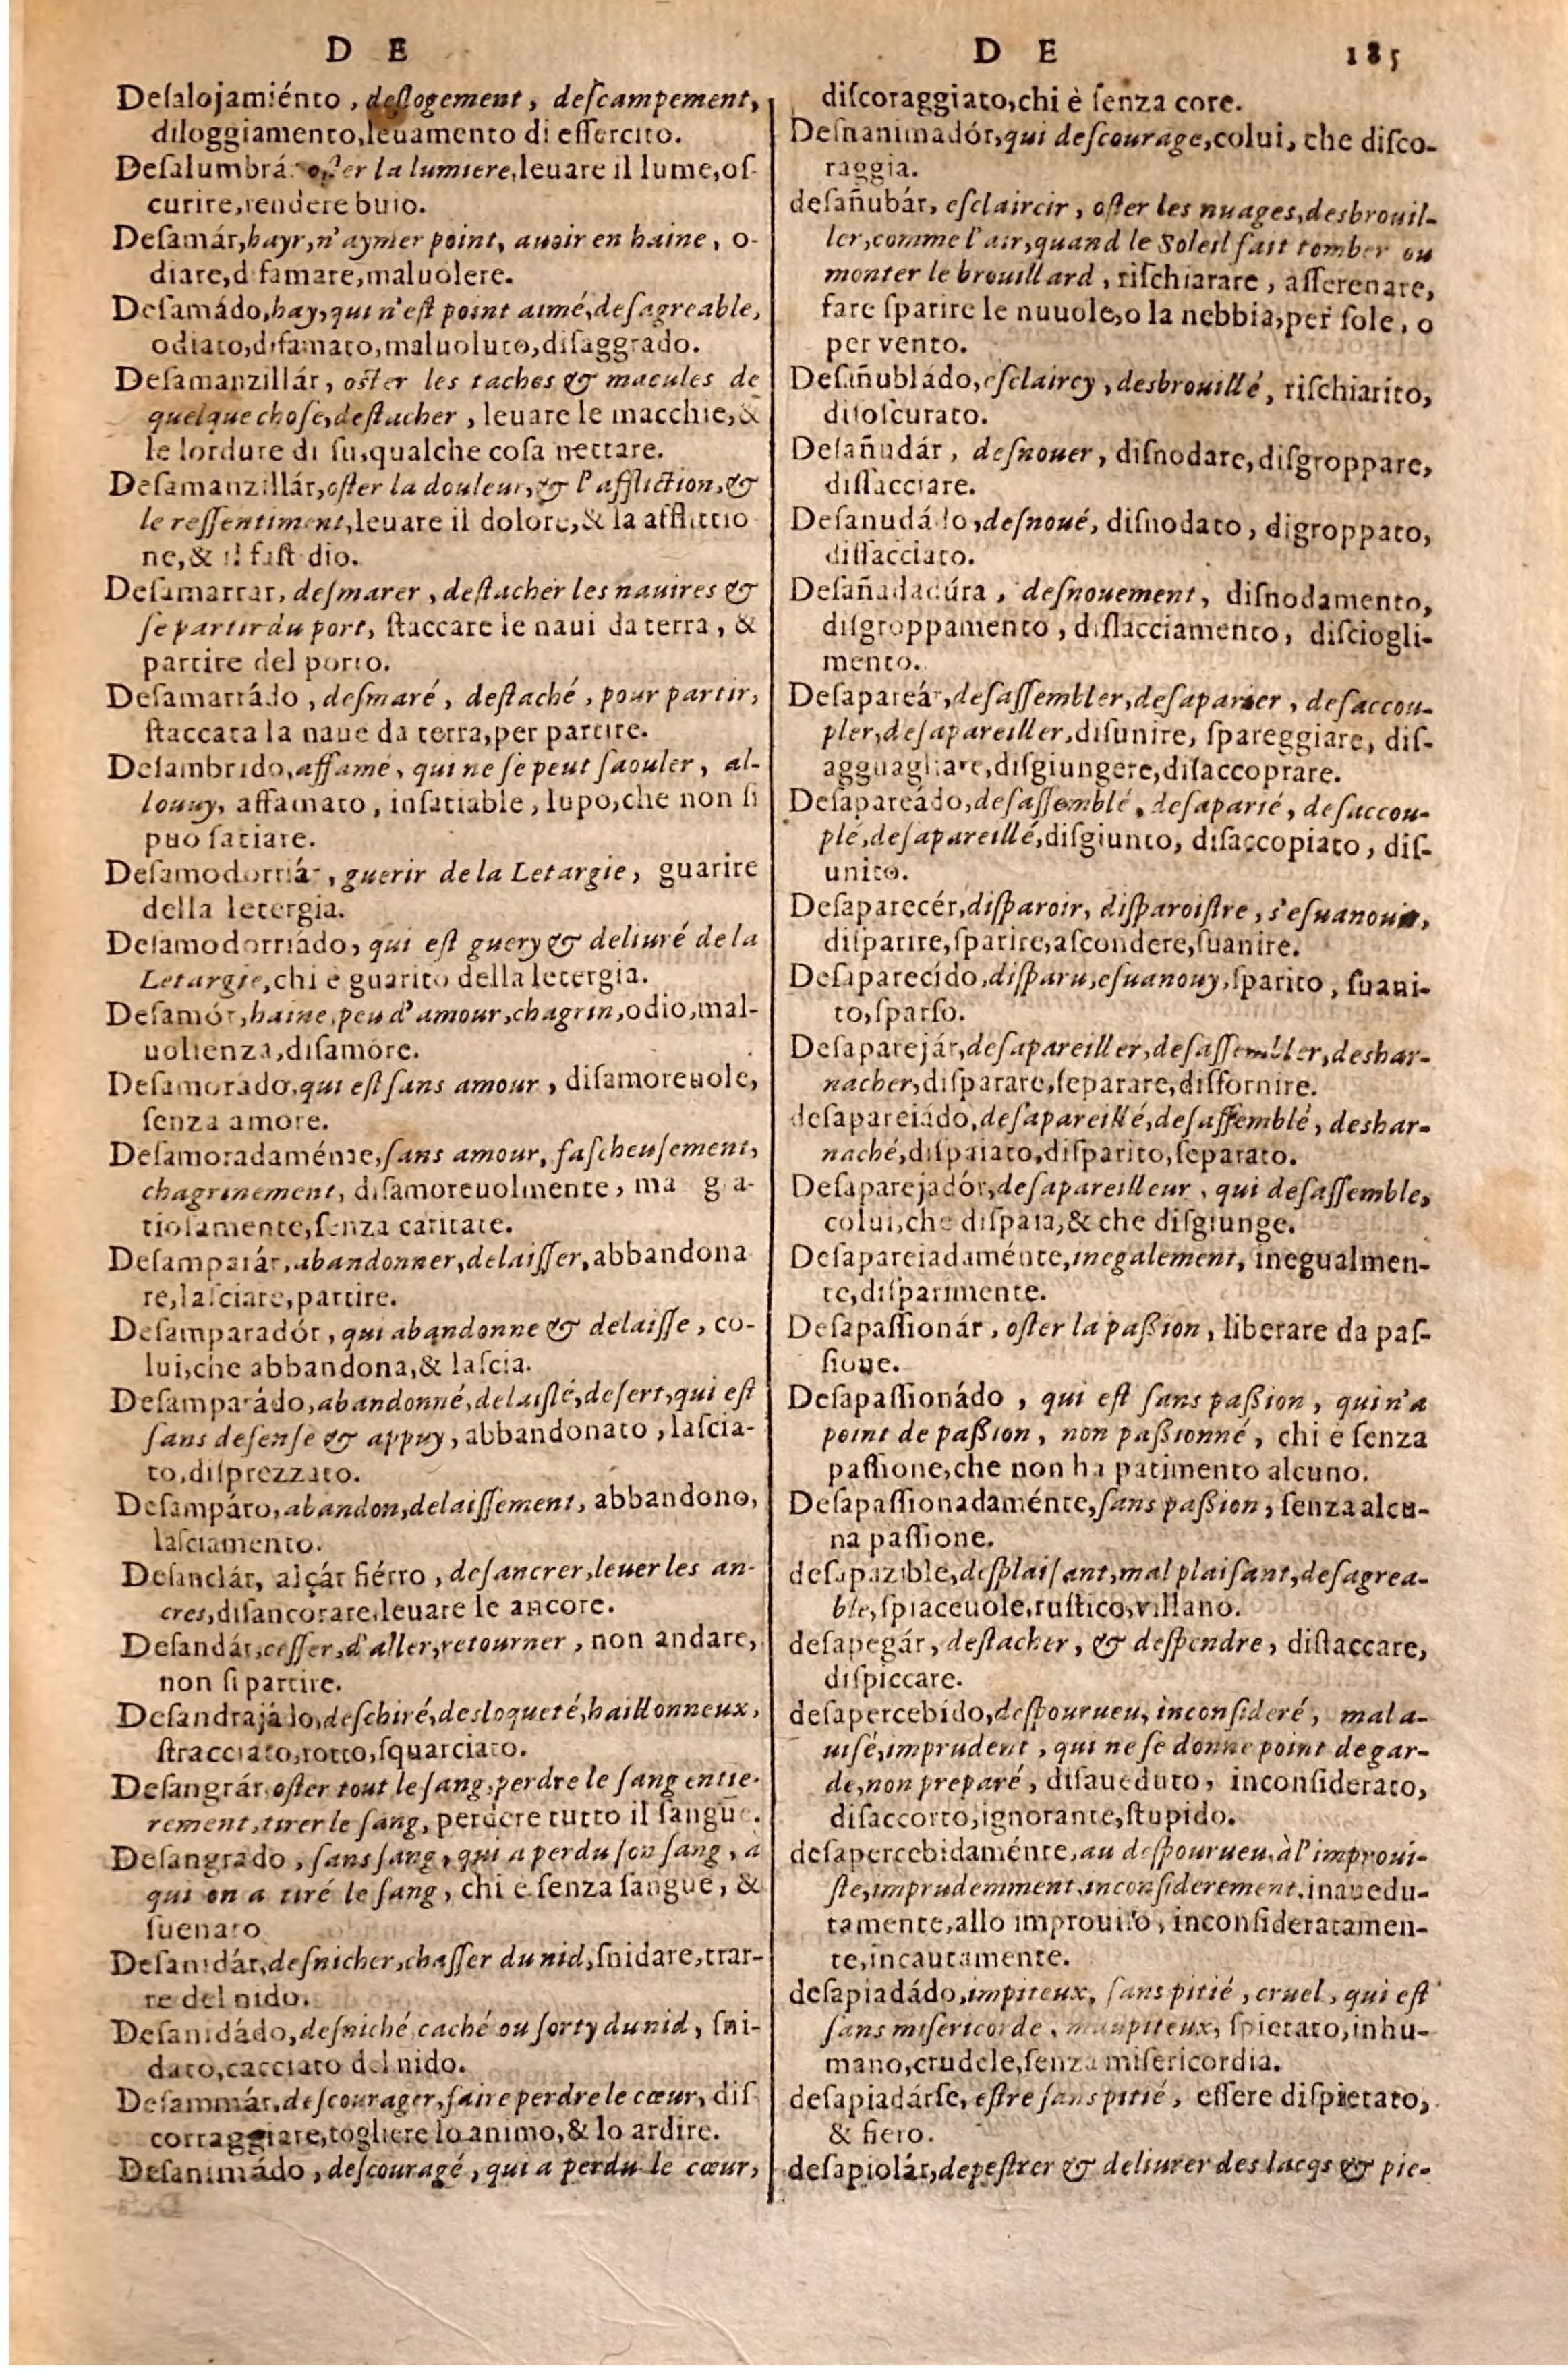 D E
Desalojamiénto, deslogement, descampement,
diloggiamento,leuamento di essercito.
Desalumbrár oster la lumiere,leuare il lume,os-
curire,rendere buio.
Desamár,hayr,n'aymer point, auoir en haine, o-
diare,disamare,maluolere.
Desamádo,hay,qui n'est point aimé,desagreable,
odiato,disamato,maluoluto,disaggrado.
Desamanzillár, oster les taches & macules de
quelque chose,destacher, leuare le macchie,&
le lordure di su,qualche cosa nettare.
Desamanzillár,oster la douleur,& l'affliction,&
le ressentiment,leuare il dolore,& la afflittio
ne,& il fastidio.
Desamarrar, desmarer, destacher les nauires &
se partir du port, staccare le naui da terra, &
partire del porto.
Desamarrádo, desmaré, destaché, pour partir,
staccata la naue da terra,per partire.
Desambrido,affamé, qui ne se peut saouler, al-
louuy, affamato, insatiable, lupo,che non si
puo satiare.
Desamodorriár, guerir de la Letargie, guarire
della letergia.
Desamodorriádo, qui est guery & deliuré de la
Letargie,chi è guarito della letergia.
Desamór,haine,peu d'amour,chagrin,odio,mal-
uolienza,disamore.
Desamorado,qui est sans amour, disamoreuole,
senza amore.
Desamoradaménte,sans amour, fascheusement,
chagrinement, disamoreuolmente, ma gra-
tiosamente,senza caritate.
Desamparár,abandonner,delaisser,abbandona
re,lasciare,partire.
Desamparadór, qui abandonne & delaisse, co-
lui,che abbandona,& lascia.
Desamparádo,abandonné,delaissé,desert,qui est
sans defense & appuy, abbandonato, lascia-
to,disprezzato.
Desampáro,abandon,delaissement, abbandono,
lasciamento.
Desanclár, alçár fiérro, desancrer,leuer les an-
cres,disancorare,leuare le ancore.
Desandár,cesser,d'aller,retourner, non andare,
non si partire.
Desandrajádo,deschiré,desloqueté,haillonneux,
stracciato,rotto,squarciato.
Desangrár oster tout le sang,perdre le sang entie-
rement,tirer le sang, perdere tutto il sangue.
Desangrado, sans sang, qui a perdu son sang, à
qui on a tiré le sang, chi è senza sangue, &
suenato
Desanidár,desnicher,chasser du nid,snidare,trar-
re del nido.
Desanidádo,desniché caché ou sorty du nid, sni-
dato,cacciato del nido.
Desanimár,descourager,faire perdre le cœur, dis
corraggiare,togliere lo animo,& lo ardire.
Desanimádo, descouragé, qui a perdu le cœur,
D E 185
discoraggiato,chi è senza core.
Desnanimadór,qui descourage,colui, che disco-
raggia.
desañubár, esclaircir, oster les nuages,desbrouil-
ler,comme l'air,quand le Soleil fait tomber ou
monter le brouillard, rischiarare, asserenare,
fare sparire le nuuole,o la nebbia,per sole, o
per vento.
Desañubládo,esclaircy, desbrouillé, rischiarito,
disoscurato.
Desañudár, desnouer, disnodare,disgroppare,
dislacciare.
Desanudádo,desnoué, disnodato, digroppato,
dislacciato.
Desañadadúra, desnouement, disnodamento,
disgroppamento, dislacciamento, disciogli-
mento.
Desapareár,desassembler,desaparier, desaccou-
pler,desapareiller,disunire, spareggiare, dis-
agguagliare,disgiungere,disaccoprare.
Desapareádo,desassemblé, desaparié, desaccou-
plé,desapareillé,disgiunto, disaccopiato, dis-
unito.
Desaparecér,disparoir, disparoistre, s'esuanouir,
disparire,sparire,ascondere,suanire.
Desaparecído,disparu,esuanouy,sparito, suani-
to,sparso.
Desaparejár,desapareiller,desassembler,deshar-
nacher,disparare,separare,disfornire.
desapareiádo,desapareillé,desassemblé, deshar-
naché,dispaiato,disparito,separato.
Desaparejadór,desapareilleur, qui desassemble,
colui,che dispaia,& che disgiunge.
Desapareiadaménte,inegalement, inegualmen-
te,disparimente.
Desapassionár, oster la passion, liberare da pas-
sione.
Desapassionádo, qui est sans passion, qui n'a
point de passion, non passionné, chi è senza
passione,che non ha patimento alcuno.
Desapassionadaménte,sans passion, senza alcu-
na passione.
desapazible,desplaisant,mal plaisant,desagrea-
ble,spiaceuole,rustico,villano.
desapegár, destacher, & despendre, distaccare,
dispiccare.
desapercebído,despourueu, inconsideré, mal a-
uisé,imprudent, qui ne se donne point de gar-
de,non preparé, disaueduto, inconsiderato,
disaccorto,ignorante,stupido.
desapercebidaménte,au despourueu,à l'improui-
ste,imprudemment,inconsiderement.inauedu-
tamente,allo improuiso, inconsideratamen-
te,incautamente.
desapiadádo,impiteux, sans pitié, cruel, qui est
sans misericorde, maupiteux, spietato,inhu-
mano,crudele,senza misericordia.
desapiadárse, estre sans pitié, essere dispietato,
& fiero.
desapiolár,depestrer & deliurer des lacqs & pie-